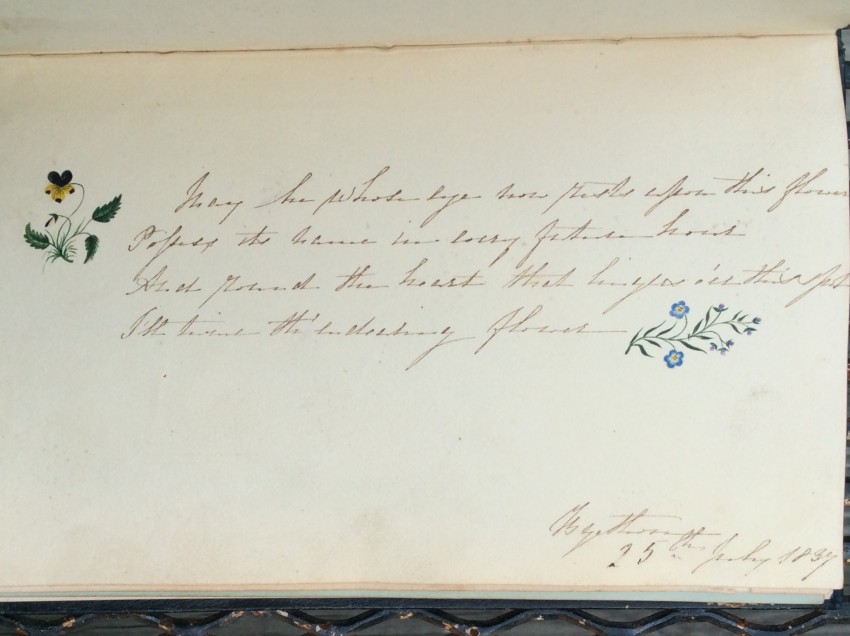 May he whose eye now rests upon this flower
Possess its name in every future hour
And round the heart that lingers o'er this spot
I'll twine th' endearing flower
25th July 1837